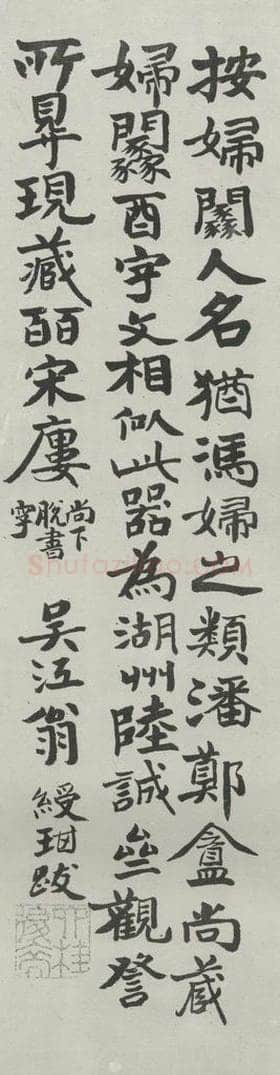 按婦人名猶馮婦之類潘鄭盦尚藏
婦酉字文相似此器為湖州陸誠亝觀詧
所現藏皕宋廔
尚下
脫書
字
吳江翁綬琪跋